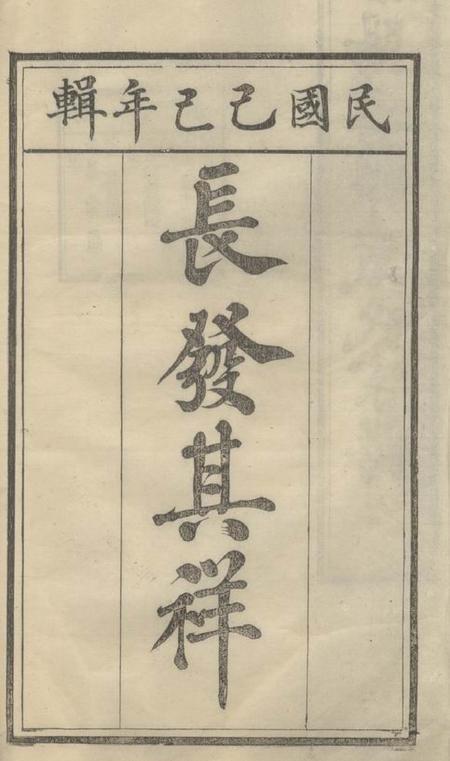 民國己巳年輯
長發其祥